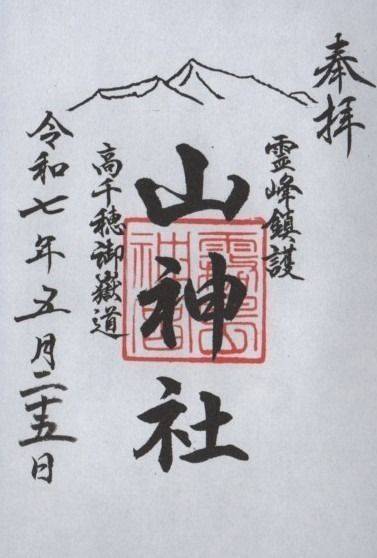 奉拝
霊峰鎮護
山神社
高千穂御嶽道
令和七年五月二十五日